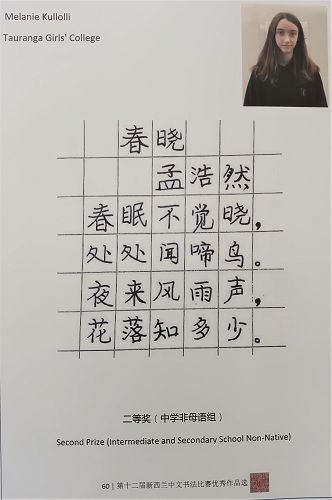 Melanie Kullolli
Tauranga Girls' College
春晓
孟浩然
春眠不觉晓，
处处闻啼鸟。
夜来风雨声，
花落知多少。
二等奖（中学非母语组）
Second Prize (Intermediate and Secondary School Non-Native)
60 | 第十二届新西兰中文书法比赛优秀作品选